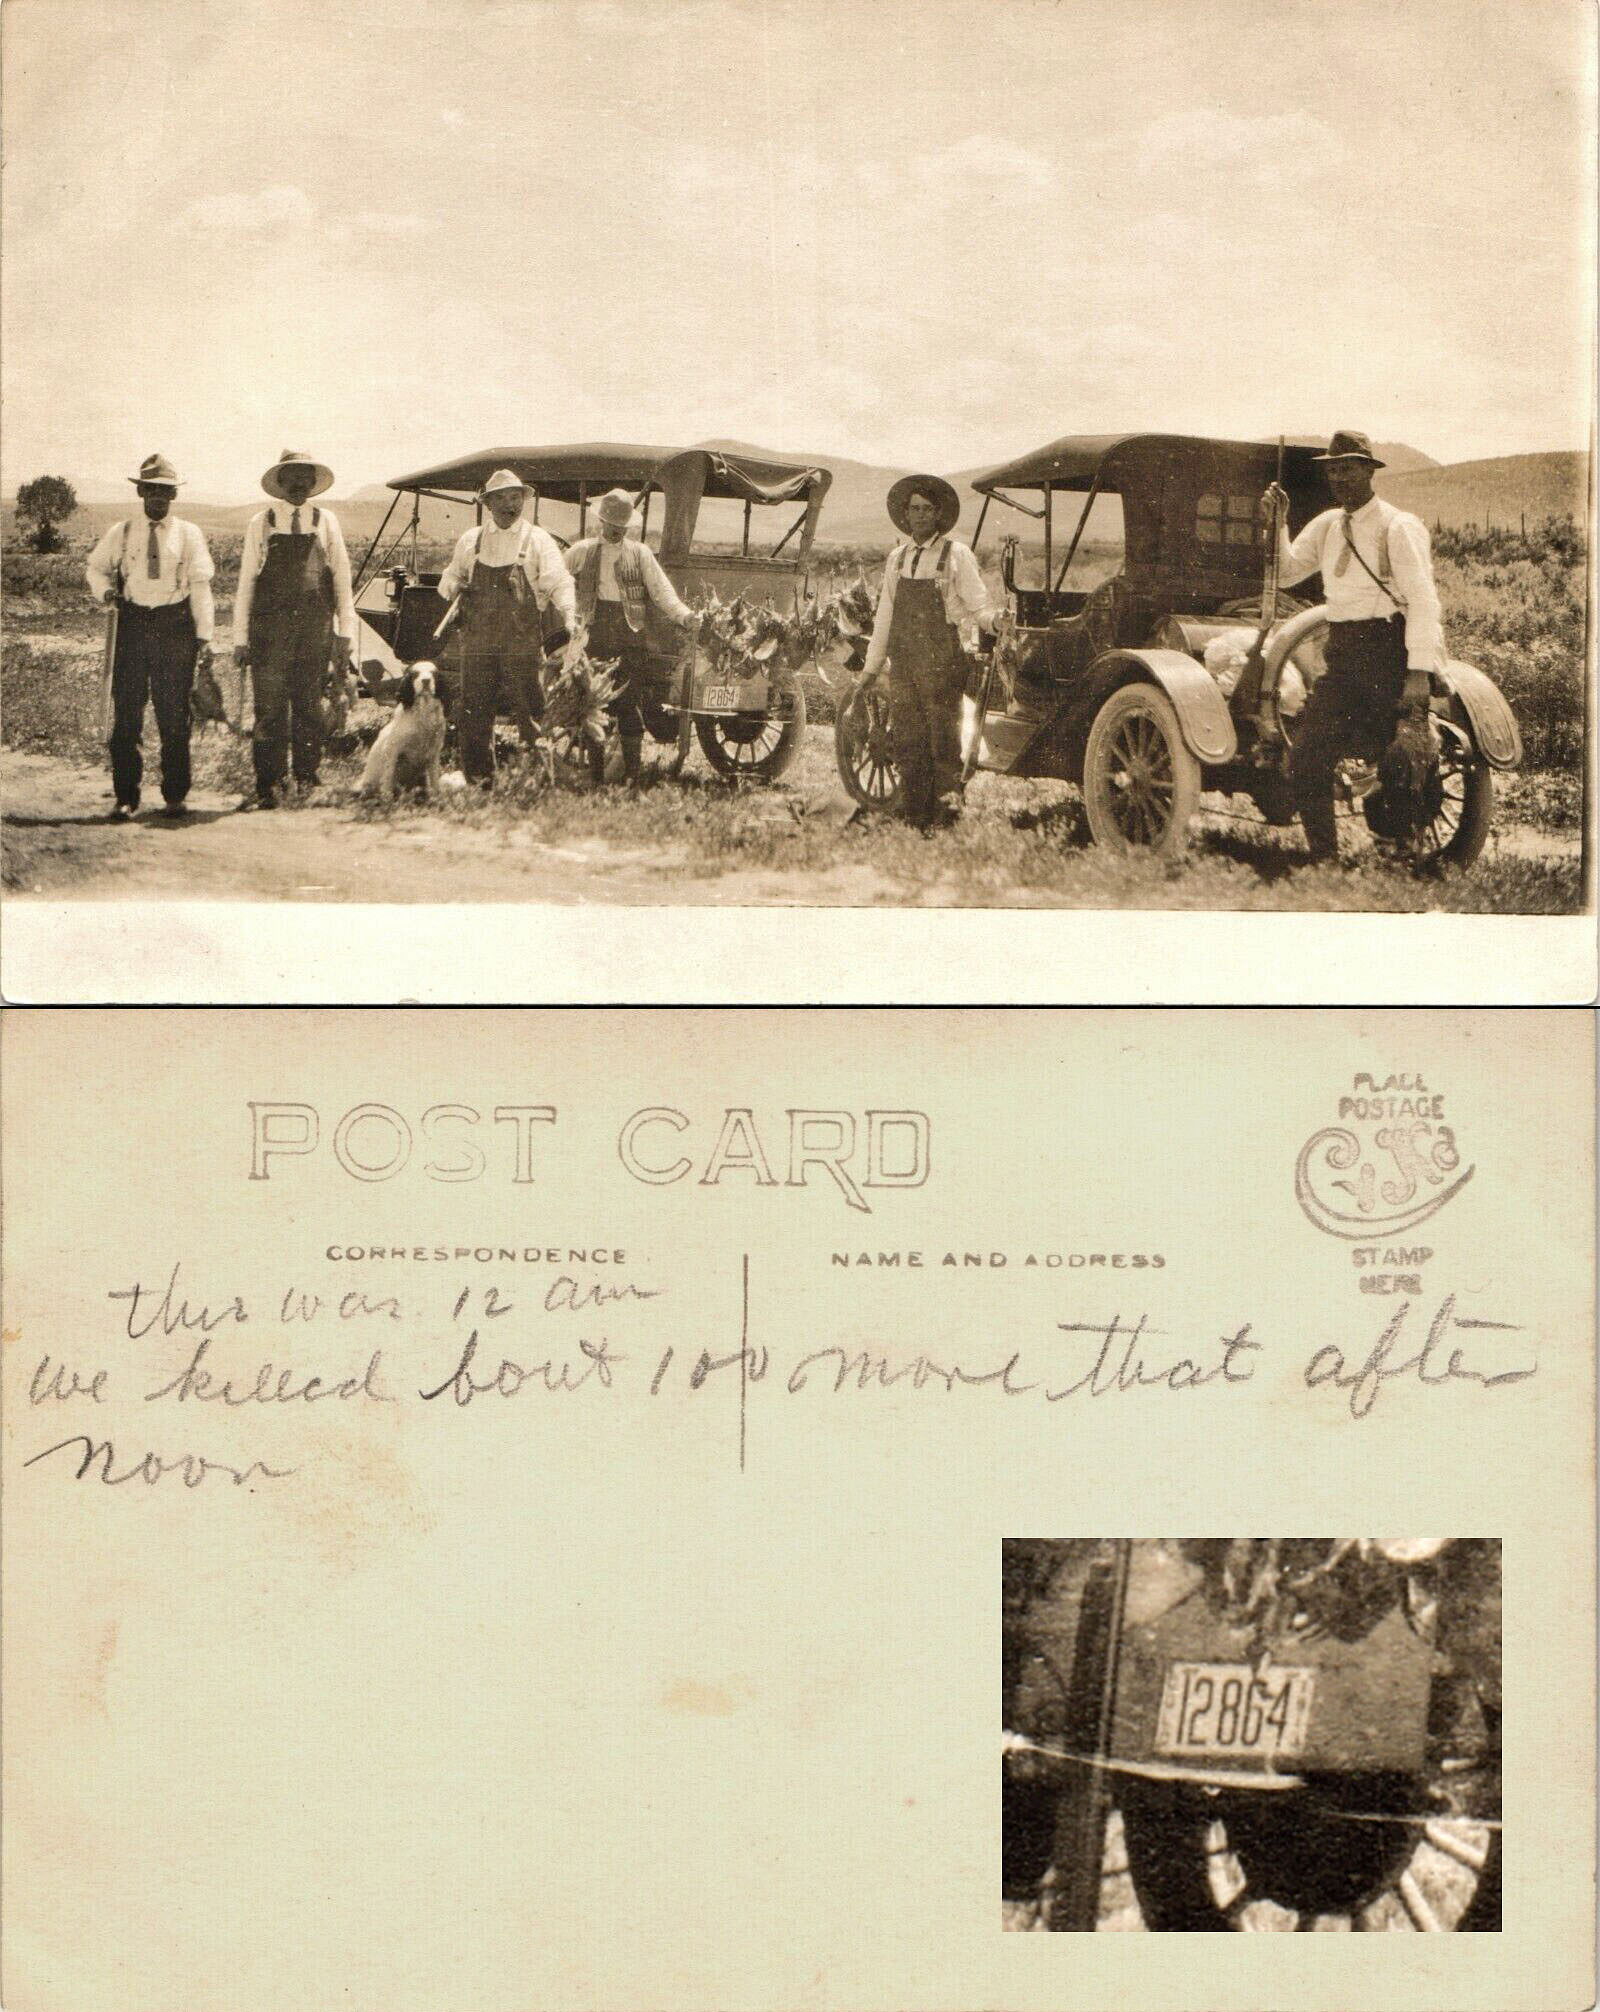 12864
POST CARD
PLACE
POSTAGE
CYKO
STAMP
HERE
CORRESPONDENCE
NAME AND ADDRESS
this was 12 am
we killed bout 100 more that after
noon
12864